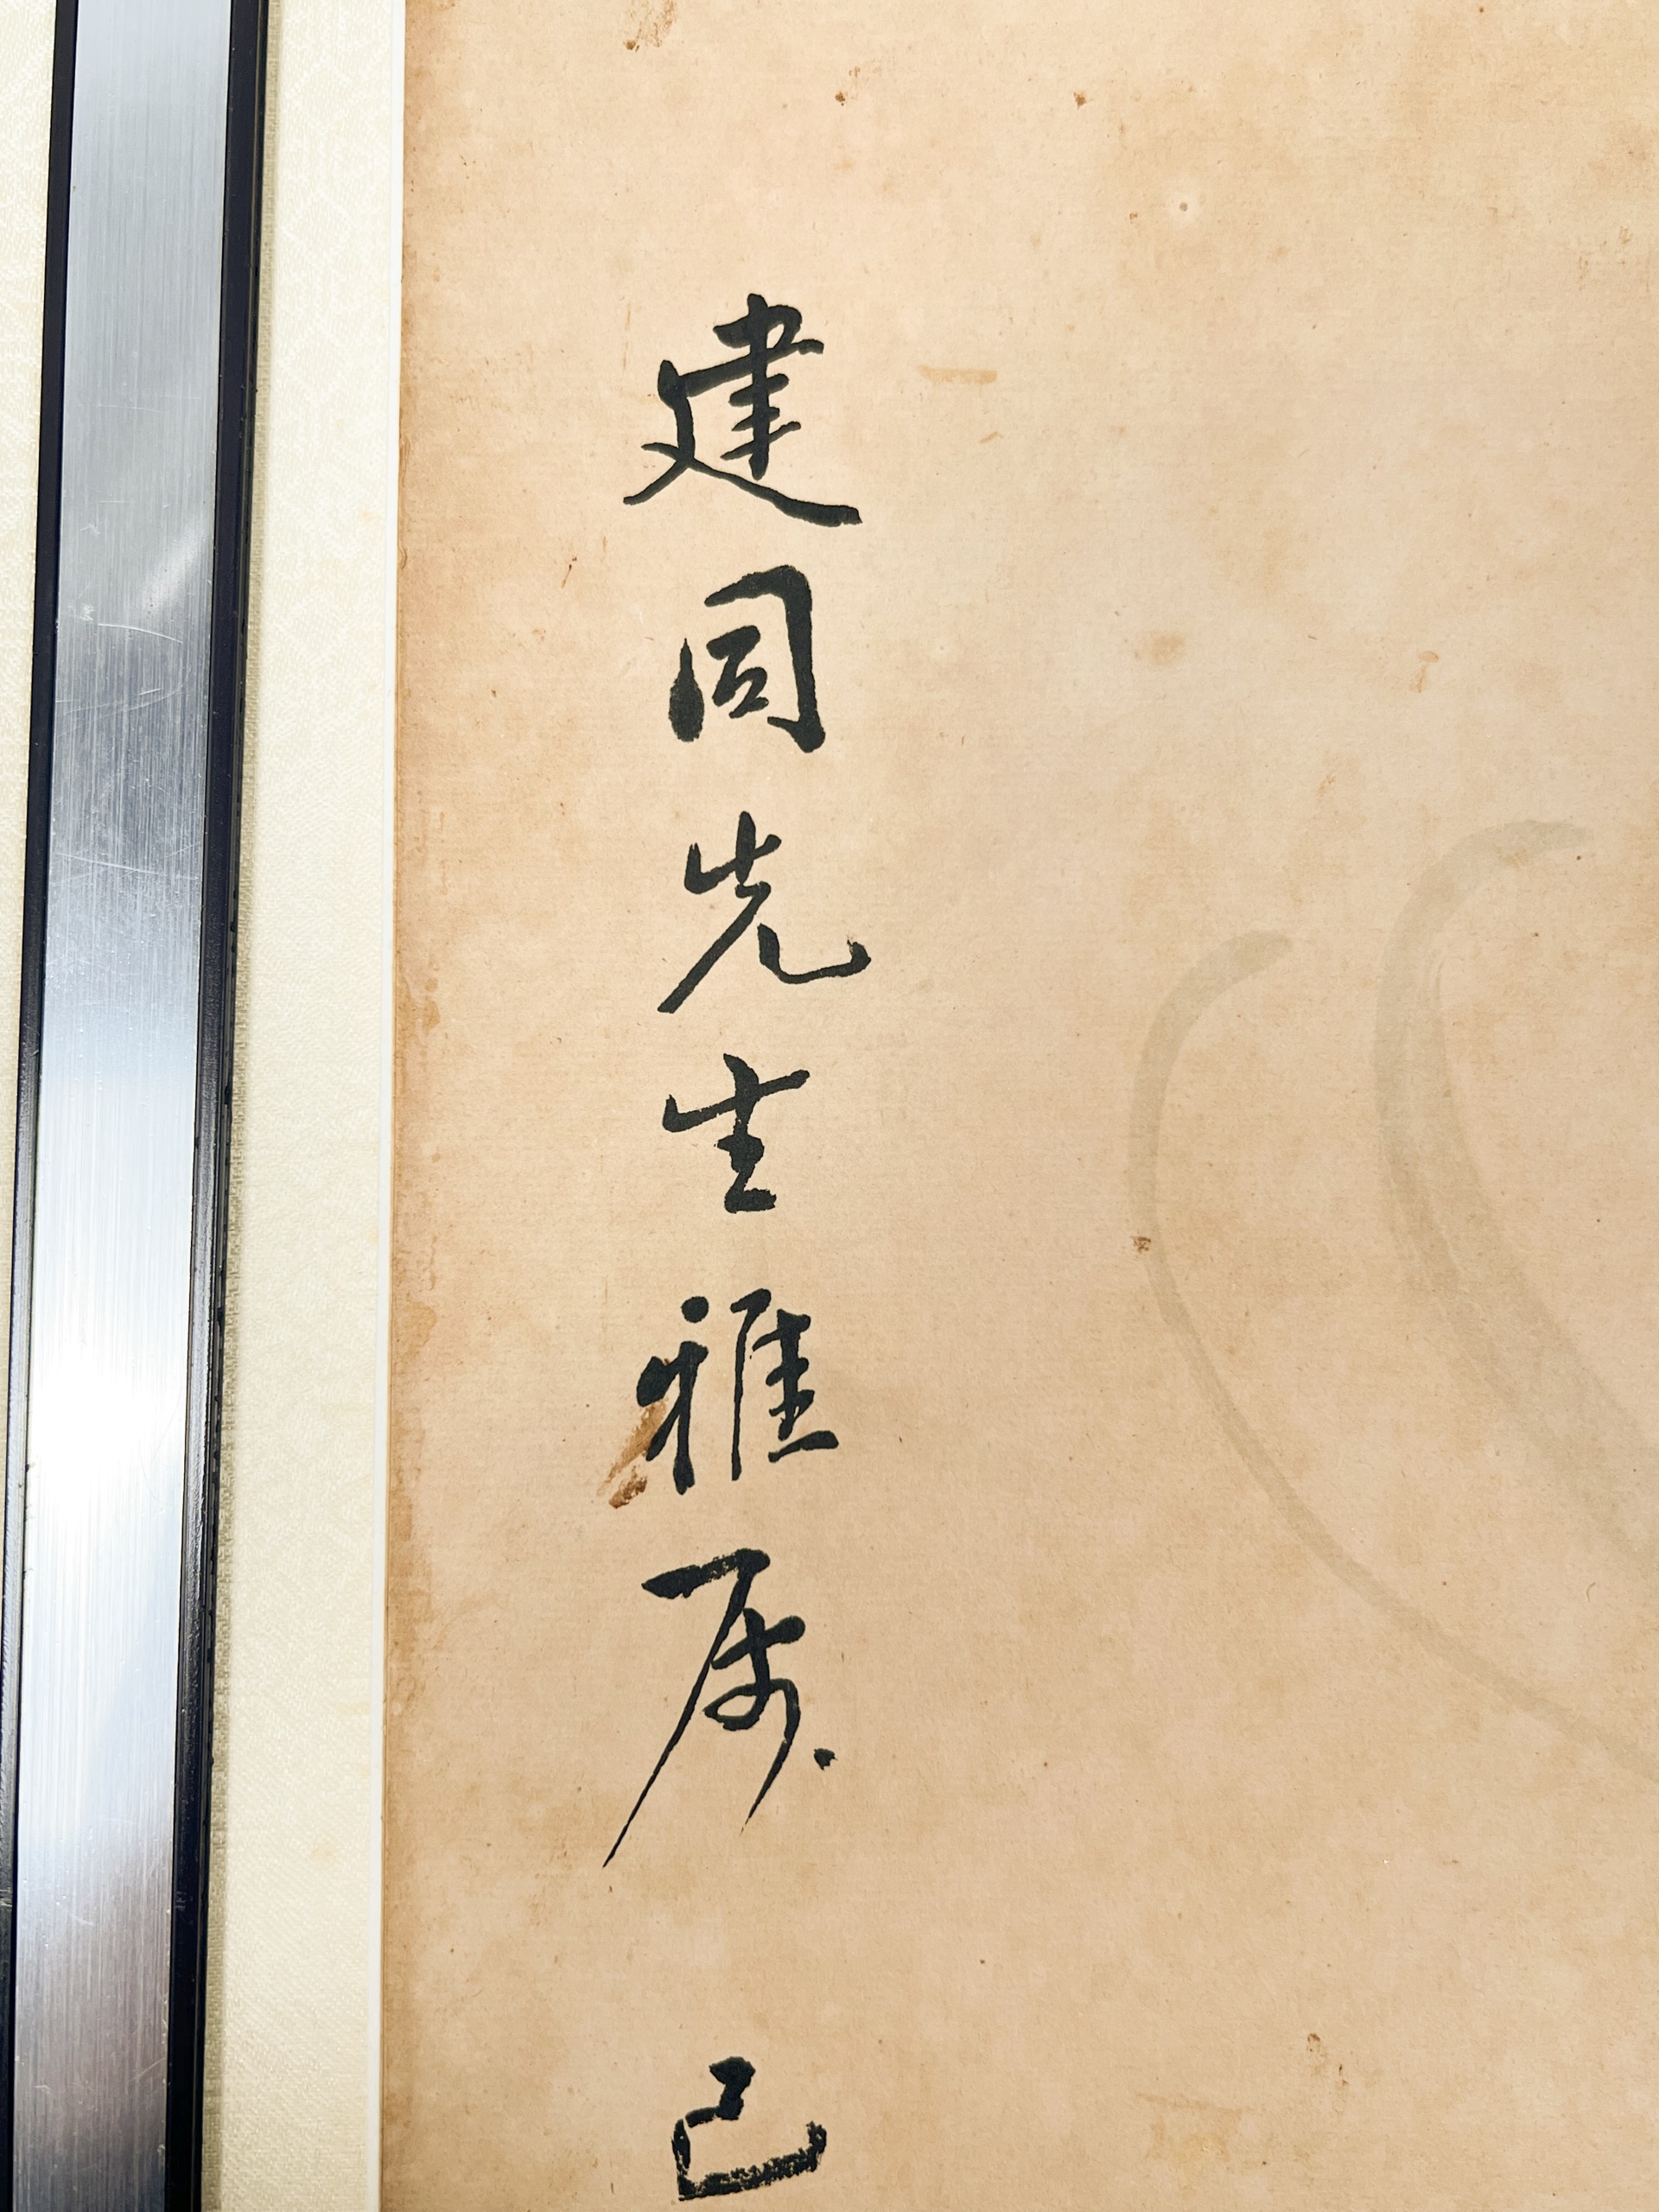 建同先生雅属 己